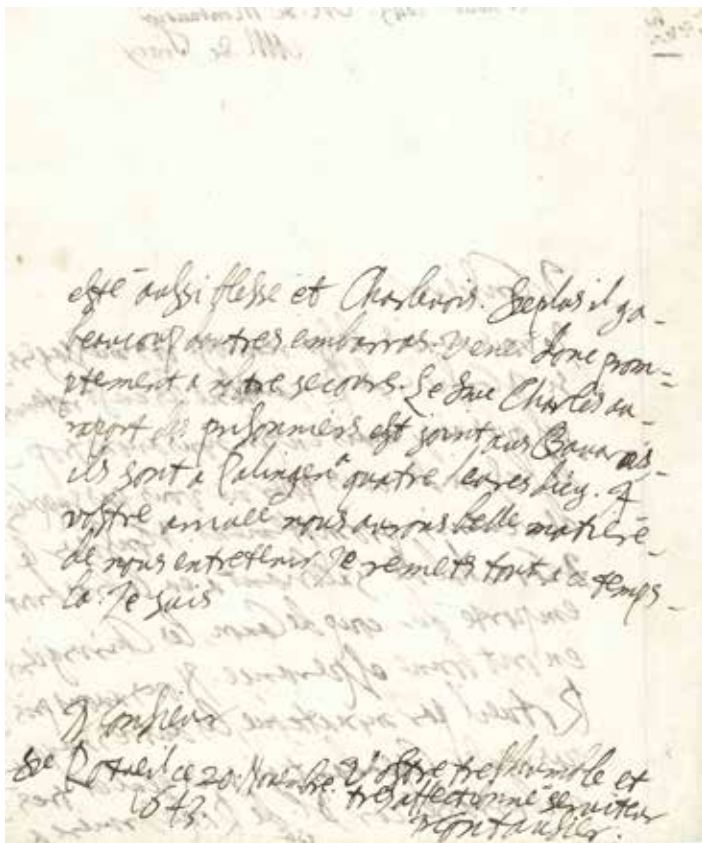 esté aussi blessé et Charlevois. De plus il y a -
beaucoup dautres embarras. Venez donc prom=
ptement a notre secours. Le Duc Charles au -
raport des prisonniers est joint aux Bavarois -
ils sont a Balingen a quatre lieues dicy. A
vostre arrivée nous aurons belle matiere -
de nous entretenir Je remets tout a ce temps -
la. Je suis
Monsieur
Vostre tres humble et
De Rotweil ce 20. Novembre. tres affectionné serviteur
1643. Montausier.